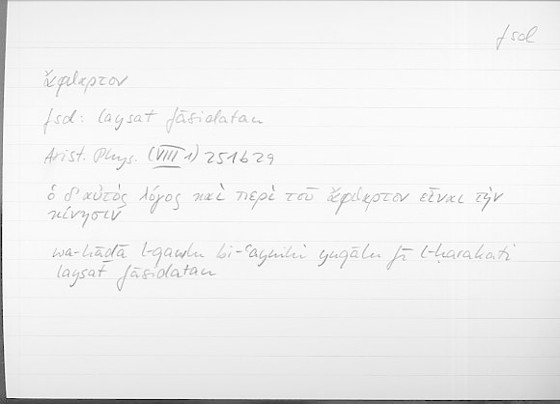 fsd
ἄφθαρτον
fsd: laysat fāsidatan
Arist. Phys. (VIII 1) 251b29
ὁ δ' αὐτὸς λόγος καὶ περὶ τοῦ ἄφθαρτον εἶναι τὴν
κίνησιν
wa-hāḏā l-qawlu bi-ʿaynihi yuqālu fī l-ḥarakati
laysat fāsidatan